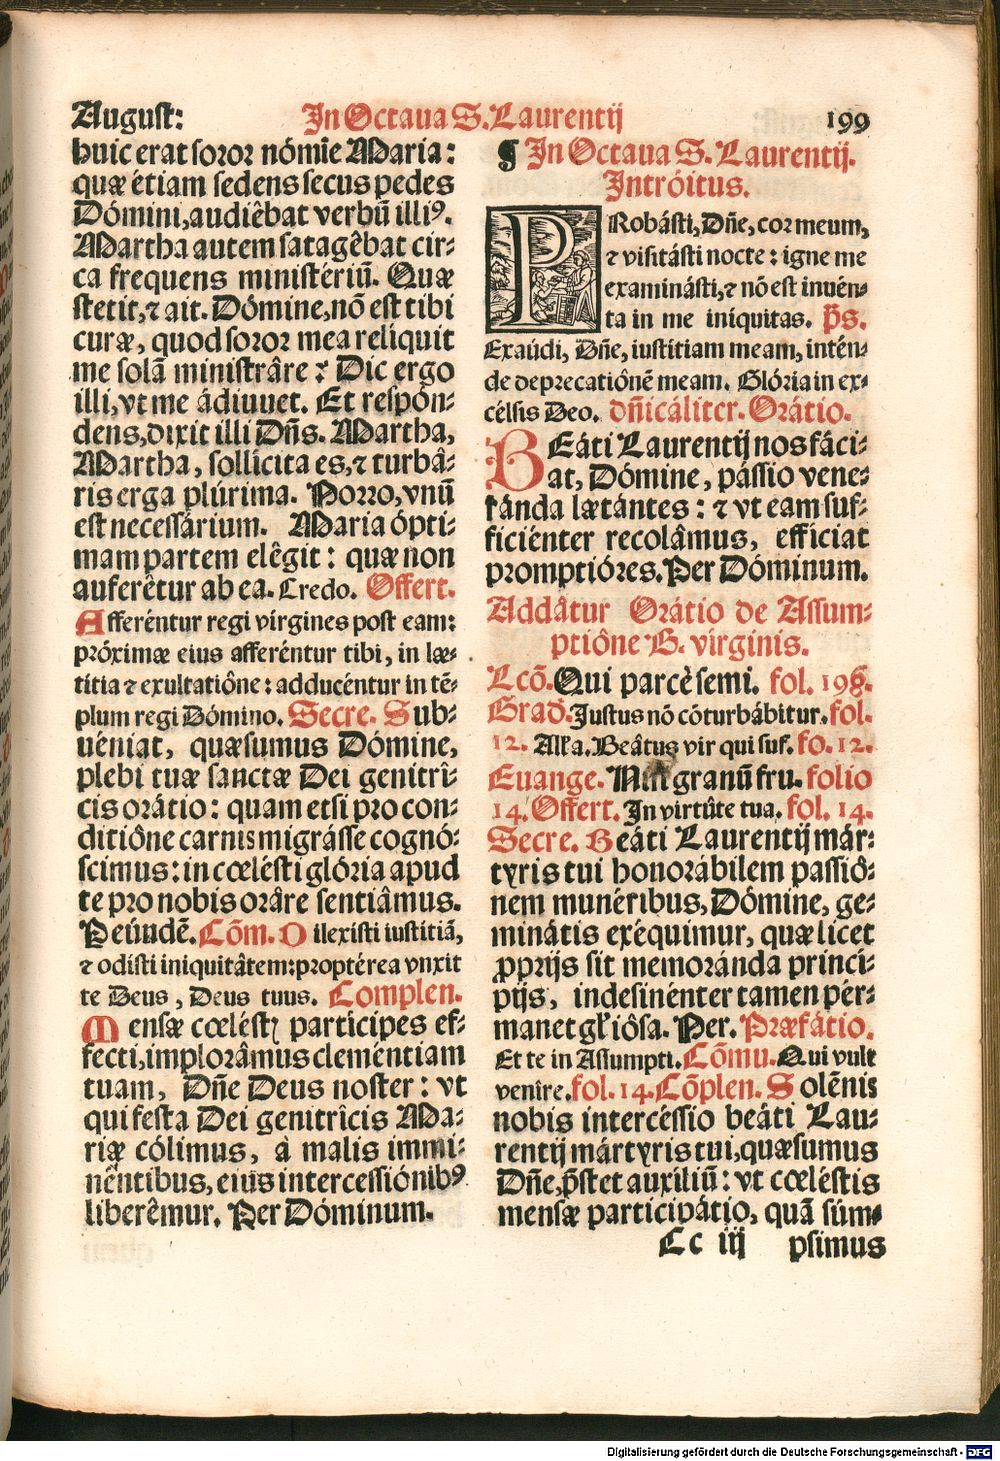 August:
In Octaua S. Laurentij
199
huic erat soror nómĩe Maria:
quæ étiam sedens secus pedes
Dómini, audiêbat verbũ illi⁹.
Martha autem satagêbat cir-
ca frequens ministériũ. Quæ
stetit, ⁊ ait. Dómine, nõ est tibi
curæ, quod soror mea relíquit
me solã ministrâre? Dic ergo
illi, vt me ádiuuet. Et respón-
dens, dixit illi Dñs. Martha,
Martha, sollícita es, ⁊ turbâ-
ris erga plúrima. Porro, vnũ
est necessárium. Maria ópti-
mam partem elêgit: quæ non
auferêtur ab ea. Credo. Offert.
Afferéntur regi vírgines post eam:
próximæ eius afferéntur tibi, in læ-
titia ⁊ exultatiône: adducéntur in tẽ-
plum regi Dómino. Secre. Sub-
uéniat, quæsumus Dómine,
plebi tuæ sanctæ Dei genitrî-
cis orátio: quam etsi pro con-
ditiône carnis migrásse cognó-
scimus: in cœlésti glória apud
te pro nobis orâre sentiâmus.
Per eúndẽ. Cõm. Dilexísti iustítiã,
⁊ odísti iniquitâtem: proptérea vnxit
te Deus, Deus tuus. Complen.
Mensæ cœléstꝭ partícipes ef-
fecti, implorâmus cleméntiam
tuam, Dñe Deus noster: vt
qui festa Dei genitrîcis Ma-
riæ cólimus, à malis immi-
nêntibus, eius intercessiónib⁹
liberêmur. Per Dóminum.
¶ In Octaua S. Laurentij.
Intróitus.
PRobásti, Dñe, cor meum,
⁊ visitásti nocte: igne me
examinásti, ⁊ nõ est inuén-
ta in me iníquitas. p̃s.
Exaúdi, Dñe, iustítiam meam, intén-
de deprecatiônẽ meam. Glória in ex-
célsis Deo. dñicáliter. Orátio.
BEáti Laurentij nos fáci-
at, Dómine, pássio vene-
ránda lætántes: ⁊ vt eam suf-
ficiénter recolâmus, effíciat
promptióres. Per Dóminum.
Addâtur Orátio de Assum-
ptiône B. vírginis.
Lcõ. Qui parcè semi. fol. 196.
Grad. Justus nõ cõturbábitur. fol.
12. Alla. Beâtus vir qui suf. fo. 12.
Euange. Nisi granũ fru. folio
14. Offert. In virtûte tua. fol. 14.
Secre. Beáti Laurentij már-
tyris tui honorábilem passiô-
nem munéribus, Dómine, ge-
minâtis exéquimur, quæ licet
ꝓprijs sit memoránda princí-
pijs, indesinénter tamen pér-
manet gl'iôsa. Per. Præfátio.
Et te in Assumpti. Cõmu. Qui vult
venîre. fol. 14. Cõplen. Solẽnis
nobis intercéssio beáti Lau-
rentij mártyris tui, quæsumus
Dñe, p̃stet auxíliũ: vt cœléstis
mensæ participátio, quã súm-
Cc iij
psimus
Digitalisierung gefördert durch die Deutsche Forschungsgemeinschaft - DFG